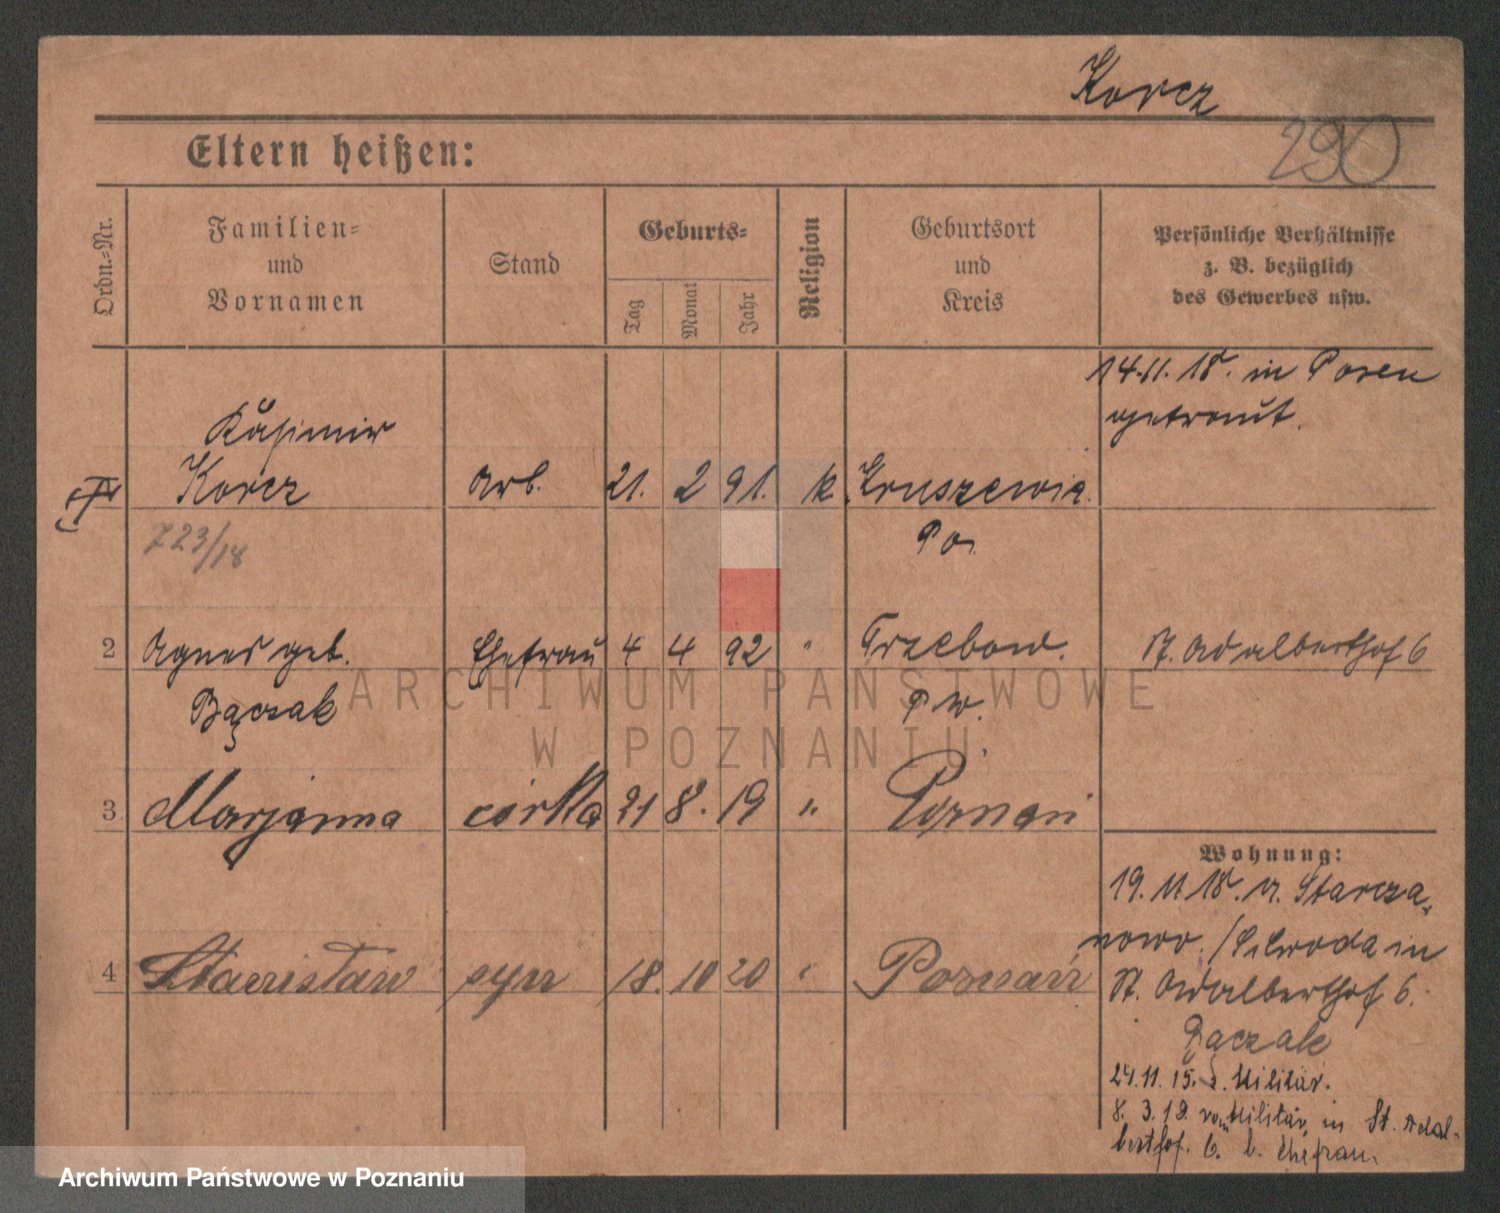 Korcz
290
Eltern heißen:
Ordn.-Nr.
Familien-
und
Vornamen
Stand
Geburts-
Tag
Monat
Jahr
Religion
Geburtsort
und
Kreis
Persönliche Verhältnisse
z. B. bezüglich
des Gewerbes usw.
14.11.18. in Posen
getraut.
Kasimir
Korcz Arb. 21. 2 91. k. Kruszewia
Po.
723/18
2 Agnes geb. Ehefrau 4 4 92 " Trzebow. St. Adalberthof 6
Bączak P. W.
3 Marjanna córka 21 8. 19 " Poznań
4 Stanisław syn 18. 10 20 " Poznań
Wohnung:
19.11.18. v. Starcza-
nowo / Schroda in
St. Adalberthof 6.
Bączak
24.11.15. z. Militär.
8. 3.19. vom Militär in St. Adal-
berthof. 6. b. Ehefrau.
ARCHIWUM PAŃSTWOWE
W POZNANIU
Archiwum Państwowe w Poznaniu